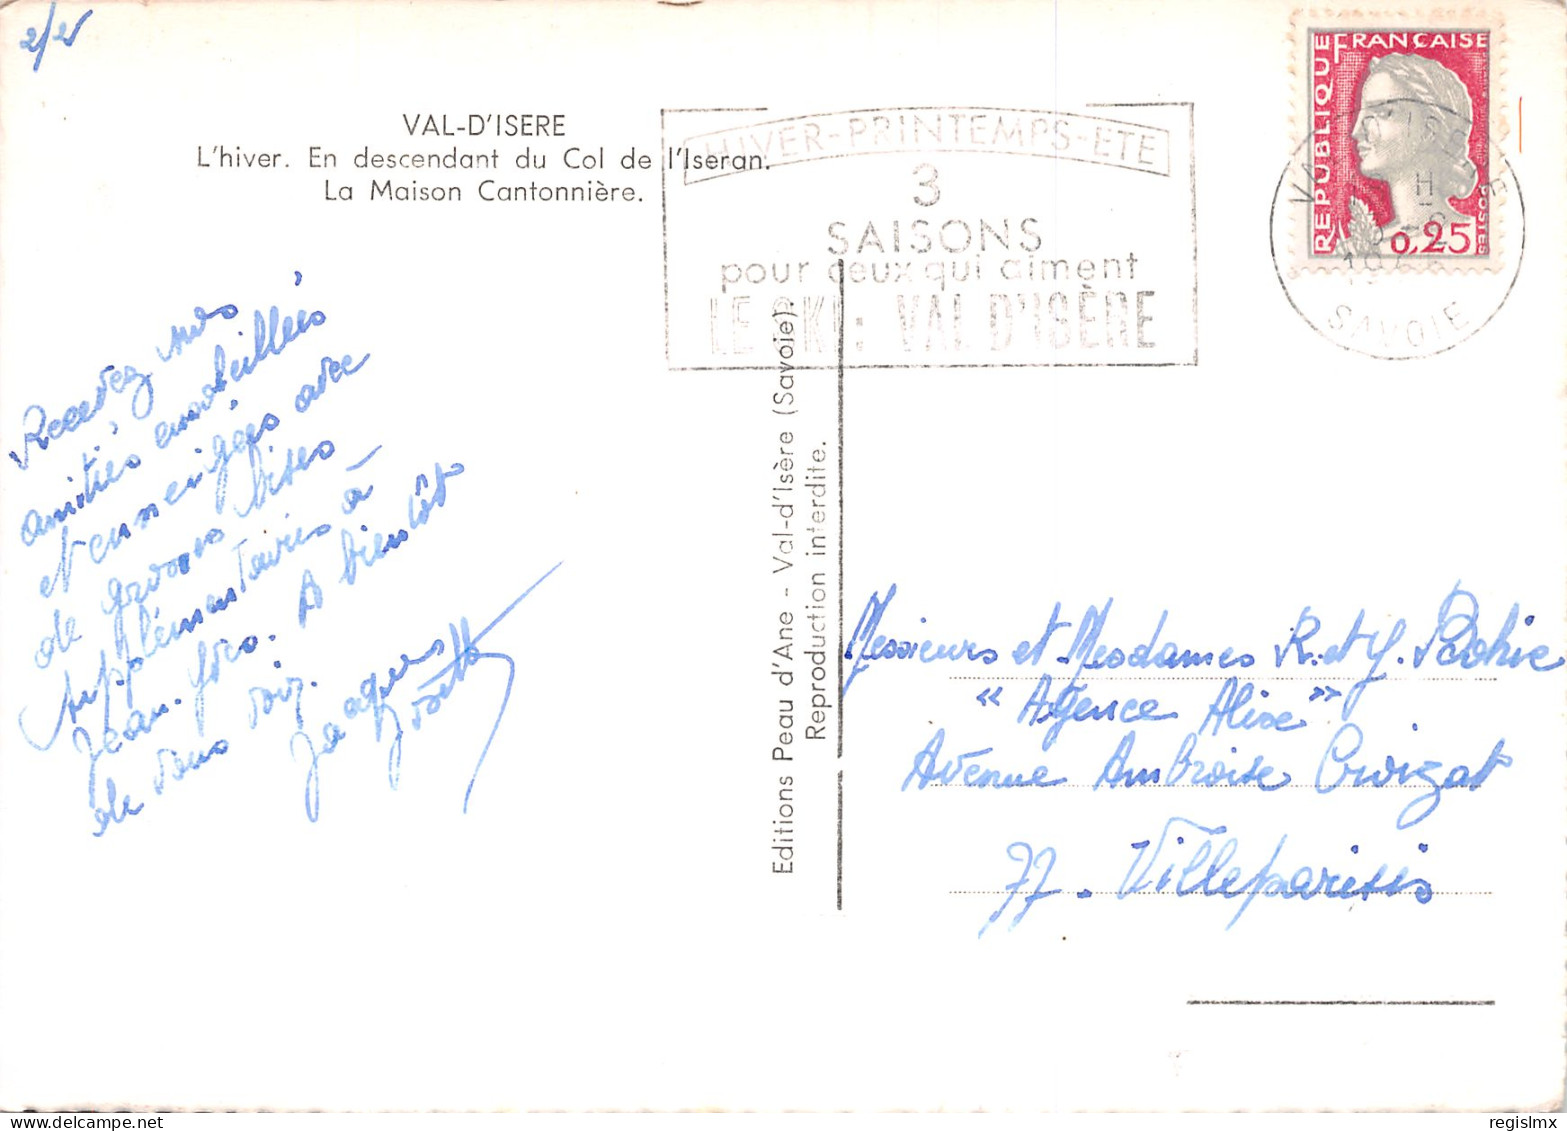 2/2
VAL-D'ISERE
L'hiver. En descendant du Col de l'Iseran.
La Maison Cantonnière.
HIVER-PRINTEMPS-ETE
3
SAISONS
pour ceux qui aiment
LE SKI: VAL D'ISÈRE
REPUBLIQUE FRANÇAISE
POSTES
0,25
VAL D'ISERE
H
SAVOIE
Recevez nos
amitiés ensoleillées
et enneigées avec
de grosses bises
supplémentaires à
Jean. A bientôt
de vous voir.
Jacques
Yvette
Editions Peau d'Ane - Val-d'Isère (Savoie).
Reproduction interdite.
Messieurs et Mesdames R. et Y.
"Agence Alixe"
Avenue Ambroise Croizat
77. Villeparisis
regislmx